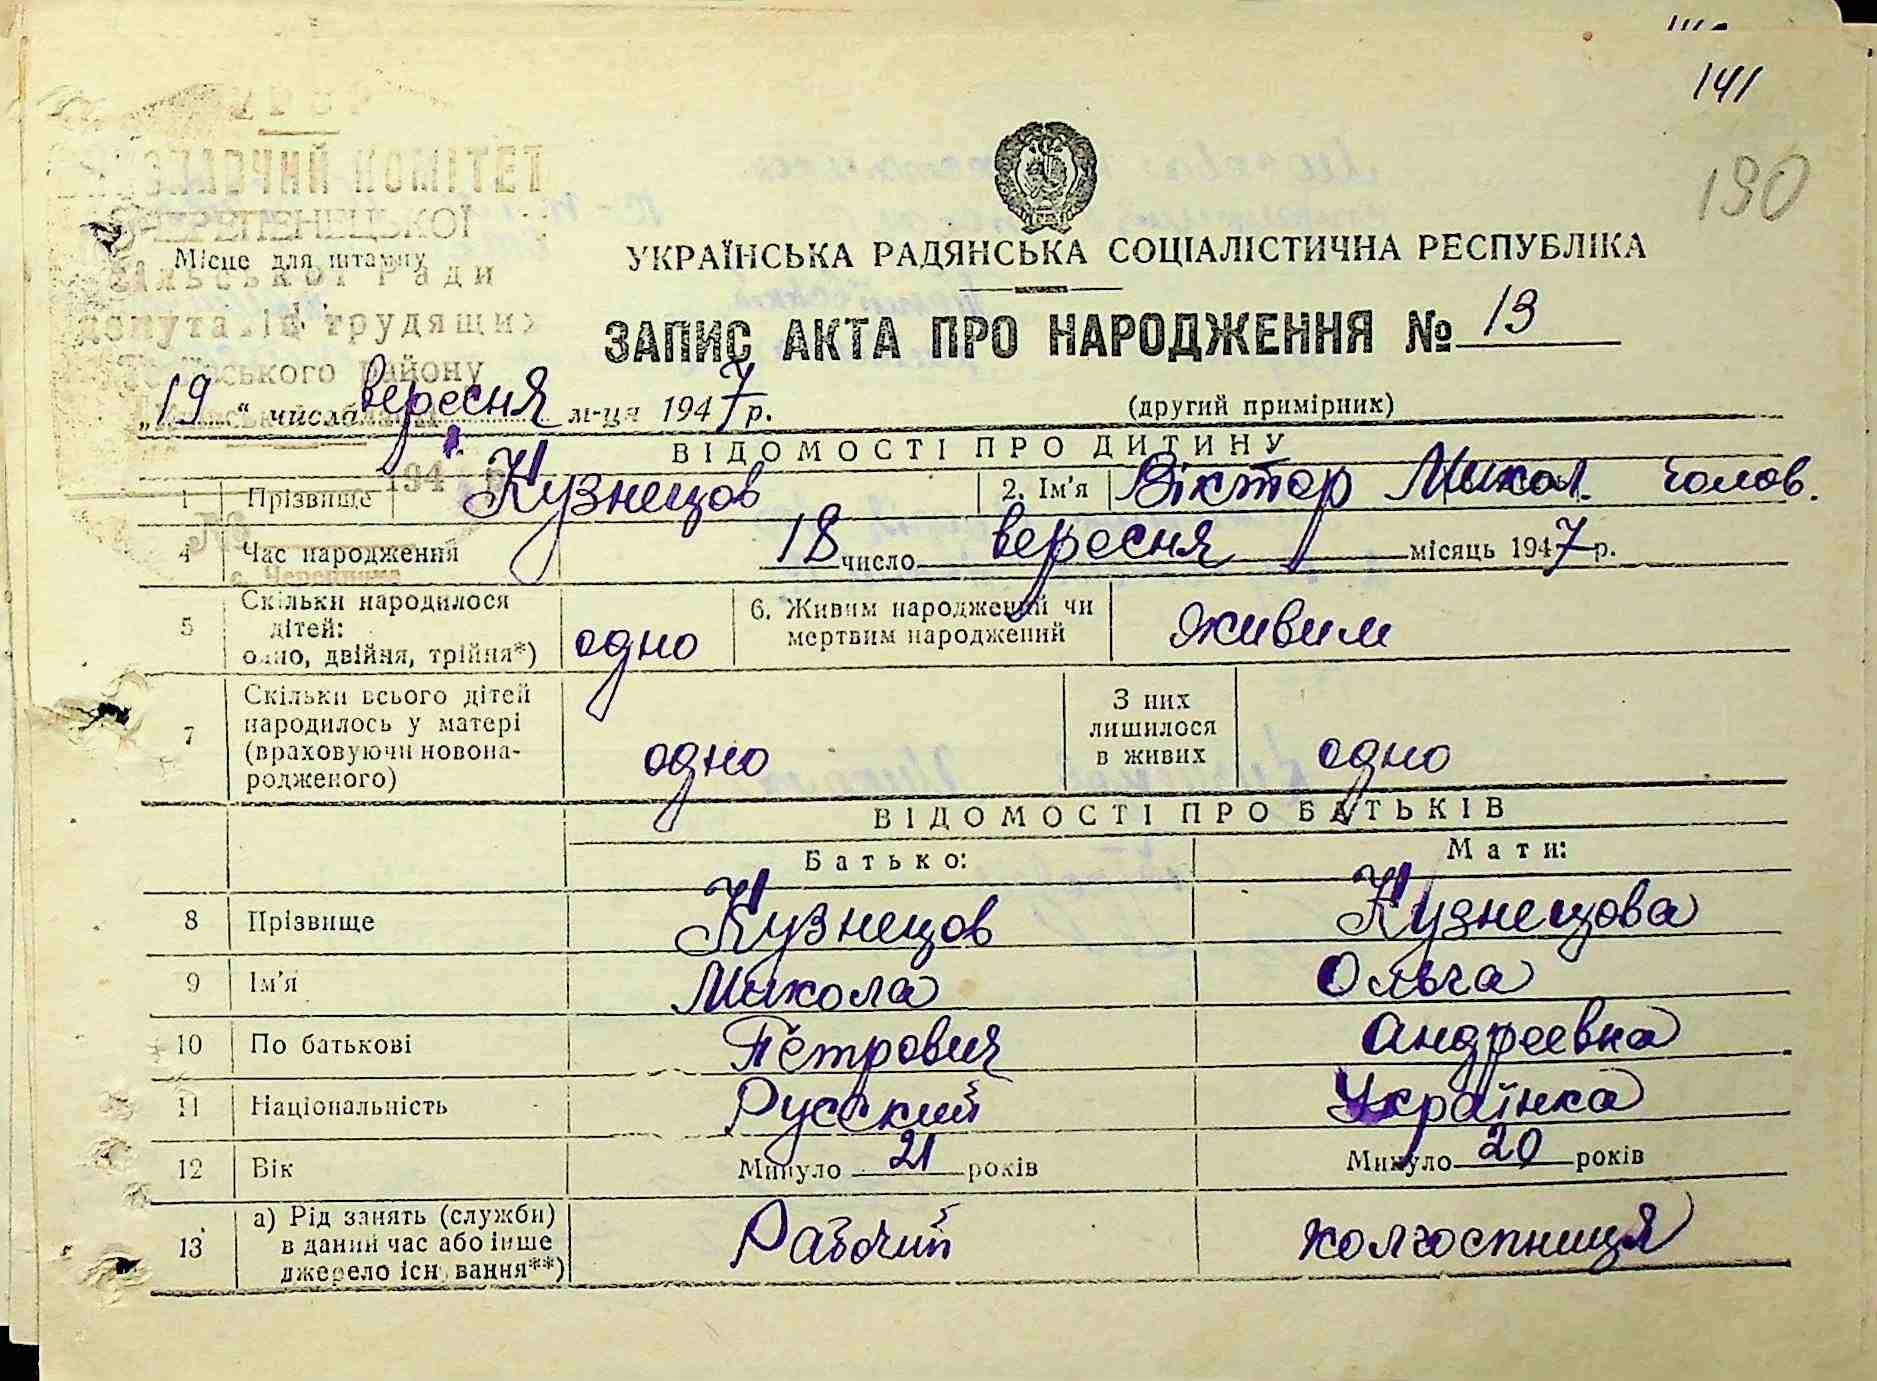 141
190
УРСР
ВИКОНАВЧИЙ КОМІТЕТ
ЧЕРЕПЕНЕЦЬКОЇ
Місце для штампу
сільської ради
депутатів трудящих
району
УКРАЇНСЬКА РАДЯНСЬКА СОЦІАЛІСТИЧНА РЕСПУБЛІКА
ЗАПИС АКТА ПРО НАРОДЖЕННЯ № 13
„19“ числа вересня м-ця 1947 р.
(другий примірник)
ВІДОМОСТІ ПРО ДИТИНУ
1 Прізвище Кузнецов 2. Ім'я Віктор Микол. Чолов.
4 Час народження 18 число вересня місяць 1947 р.
5 Скільки народилося дітей: одно, двійня, трійня*) одно 6. Живим народжений чи мертвим народжений живим
7 Скільки всього дітей народилось у матері (враховуючи новонародженого) одно З них лишилося в живих одно
ВІДОМОСТІ ПРО БАТЬКІВ
Батько: Мати:
8 Прізвище Кузнецов Кузнецова
9 Ім'я Микола Ольга
10 По батькові Петрович Андреевна
11 Національність Русский Українка
12 Вік Минуло 21 років Минуло 20 років
13 а) Рід занять (служби) в даний час або інше джерело існування**) Рабочий колгоспниця